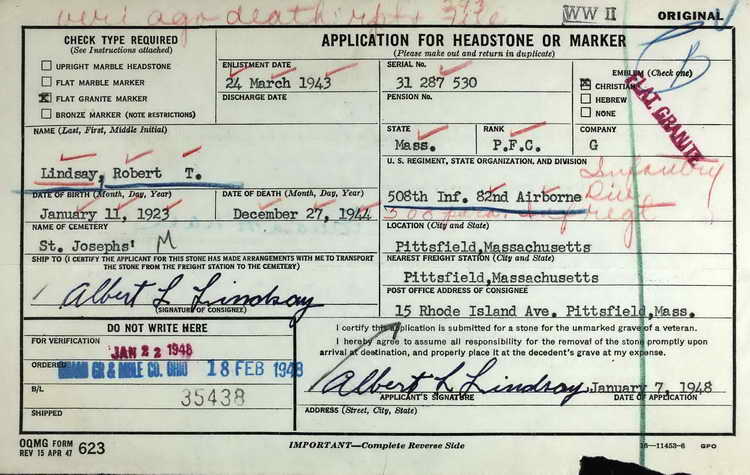 veri ago death rpt 293 file
WW II
ORIGINAL
CHECK TYPE REQUIRED
(See Instructions attached)
UPRIGHT MARBLE HEADSTONE
FLAT MARBLE MARKER
X FLAT GRANITE MARKER
BRONZE MARKER (NOTE RESTRICTIONS)
APPLICATION FOR HEADSTONE OR MARKER
(Please make out and return in duplicate)
ENLISTMENT DATE
24 March 1943
DISCHARGE DATE
SERIAL No.
31 287 530
PENSION No.
EMBLEM (Check one)
X CHRISTIAN
HEBREW
NONE
B
FLAT GRANITE
STATE
Mass.
RANK
P.F.C.
COMPANY
G
NAME (Last, First, Middle Initial)
Lindsay, Robert T.
U. S. REGIMENT, STATE ORGANIZATION, AND DIVISION
508th Inf. 82nd Airborne
Infantry
Div
508 para. Inf regt
DATE OF BIRTH (Month, Day, Year)
January 11, 1923
DATE OF DEATH (Month, Day, Year)
December 27, 1944
NAME OF CEMETERY
St. Josephs' M
LOCATION (City and State)
Pittsfield,Massachusetts
SHIP TO (I CERTIFY THE APPLICANT FOR THIS STONE HAS MADE ARRANGEMENTS WITH ME TO TRANSPORT
THE STONE FROM THE FREIGHT STATION TO THE CEMETERY)
Albert L Lindsay
(SIGNATURE OF CONSIGNEE)
NEAREST FREIGHT STATION (City and State)
Pittsfield,Massachusetts
POST OFFICE ADDRESS OF CONSIGNEE
15 Rhode Island Ave. Pittsfield,Mass.
DO NOT WRITE HERE
FOR VERIFICATION
JAN 22 1948
ORDERED
GR & MBLE CO. OHIO 18 FEB 1948
B/L
35438
SHIPPED
I certify this application is submitted for a stone for the unmarked grave of a veteran.
I hereby agree to assume all responsibility for the removal of the stone promptly upon
arrival at destination, and properly place it at the decedent's grave at my expense.
Albert L Lindsay January 7, 1948
APPLICANT'S SIGNATURE DATE OF APPLICATION
ADDRESS (Street, City, State)
OQMG FORM
REV 15 APR 47 623
IMPORTANT—Complete Reverse Side
16—11453-6 GPO